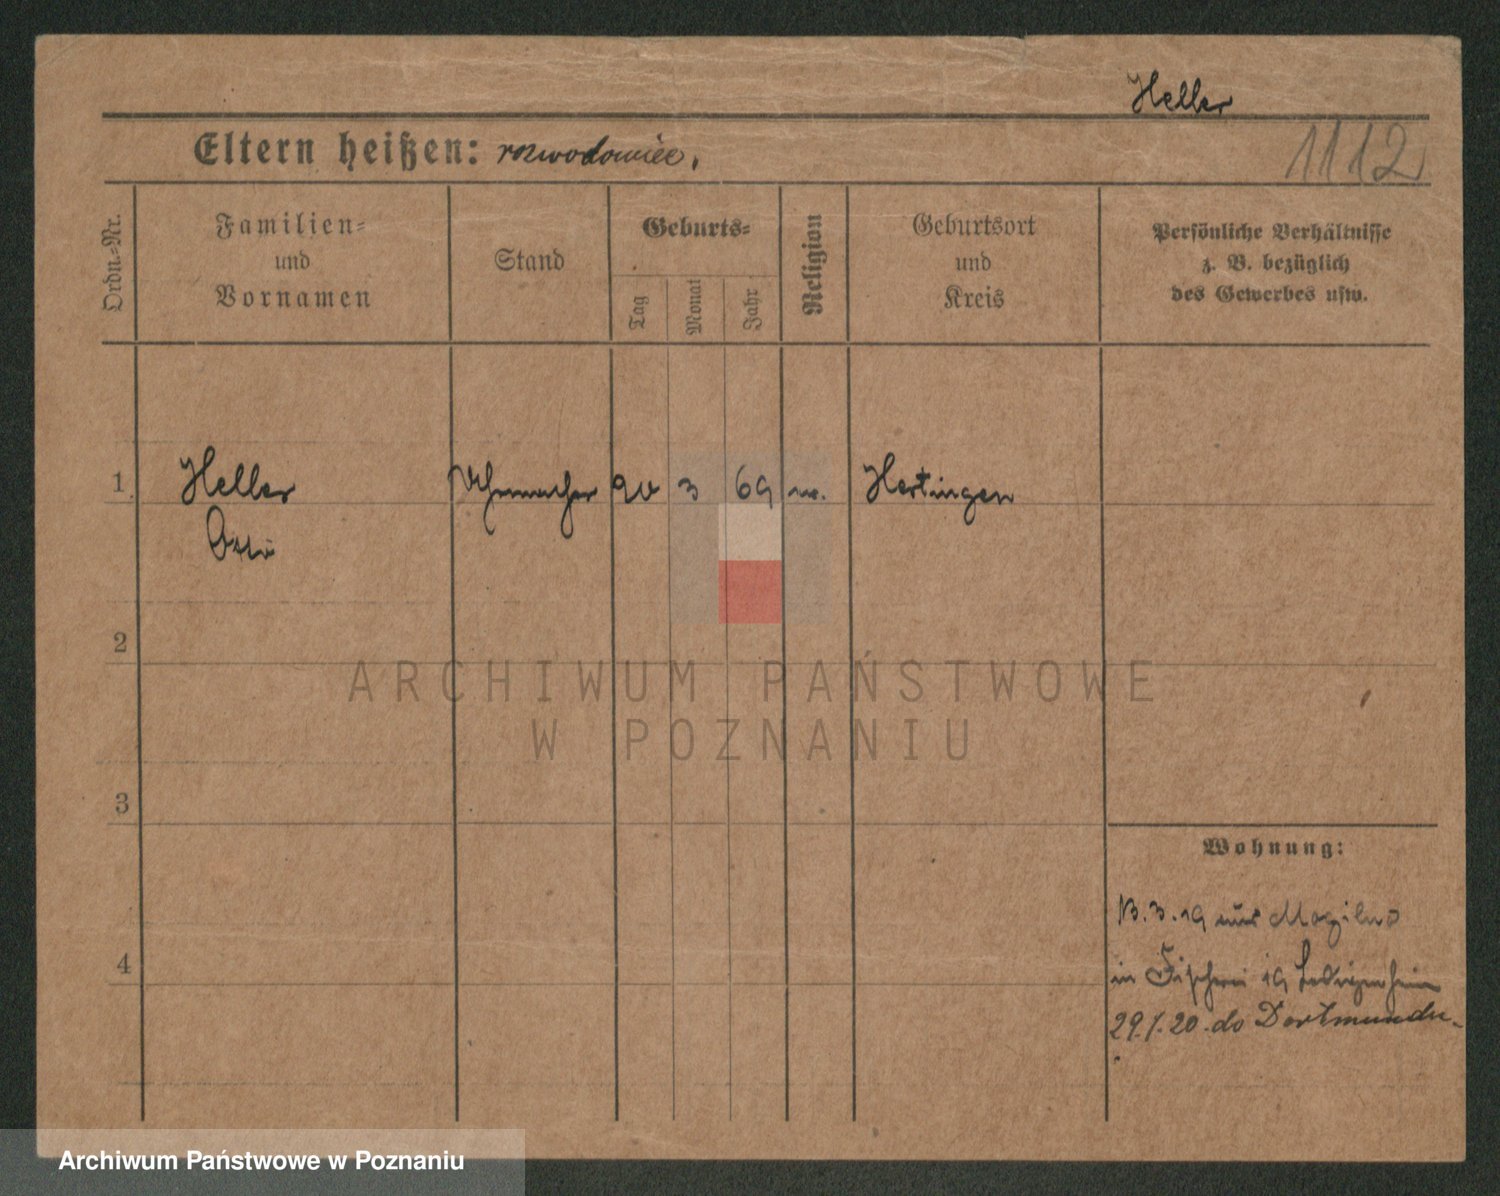 Heller
Eltern heißen: rozwodowiec.
1112
Ordn.-Nr.
Familien-
und
Vornamen
Stand
Geburts-
Tag
Monat
Jahr
Religion
Geburtsort
und
Kreis
Persönliche Verhältnisse
z. B. bezüglich
des Gewerbes usw.
1 Heller Uhrmacher 20 3 69 Hertingen
Otto
2
ARCHIWUM PAŃSTWOWE
W POZNANIU
3
Wohnung:
13.3.19 aus Mogilno
4
in Fischerei 19
29.1.20 do Dortmundu.
Archiwum Państwowe w Poznaniu